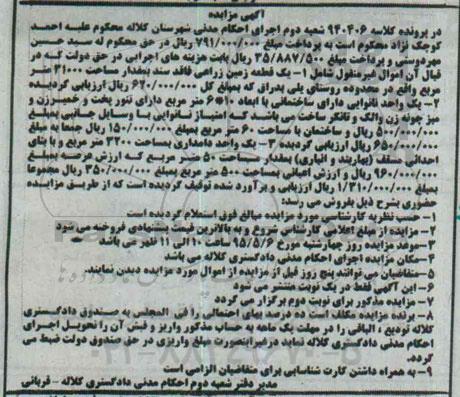 آگهی مزایده
در پرونده کلاسه ۹۴۰۴۰۶ شعبه دوم اجرای احکام مدنی شهرستان کلاله محکوم علیه احمد
کوچک نژاد محکوم است به پرداخت مبلغ ۷۹۱/۰۰۰/۰۰۰ ریال در حق محکوم له سید حسین
مهردوستی و پرداخت مبلغ ۳۵/۸۸۷/۵۰۰ ریال بابت هزینه های اجرایی در حق دولت که در
قبال آن اموال غیرمنقول شامل ۱- یک قطعه زمین زراعی فاقد سند بمقدار مساحت ۳۱۰۰۰ متر
مربع واقع در محدوده روستای پلی پدراق که بمبلغ کل ۶۲۰/۰۰۰/۰۰۰ ریال ارزیابی گردیده
۲- یک واحد نانوایی دارای ساختمانی با ابعاد ۱۰*۶ متر مربع دارای تنور پخت و خمیرزن و
میز چونه زن والک و تانکر ساخت می باشد که امتیاز نانوایی با وسایل جانبی بمبلغ
۵۰۰/۰۰۰/۰۰۰ ریال و ساختمان با مساحت ۶۰ متر مربع بمبلغ ۱۵۰/۰۰۰/۰۰۰ ریال جمعا به مبلغ
۶۵۰/۰۰۰/۰۰۰ ریال ارزیابی گردیده ۳- یک واحد دامداری بمساحت ۳۲۰۰ متر مربع و با بنای
احداثی مسقف (بهاربند و انباری) بمقدار مساحت ۵۰۰ متر مربع که ارزش عرصه بمبلغ
۹۶۰/۰۰۰/۰۰۰ ریال و ارزش اعیانی بمساحت ۵۰۰ متر مربع بمبلغ ۳۵۰/۰۰۰/۰۰۰ ریال مجموعا
بمبلغ ۱/۳۱۰/۰۰۰/۰۰۰ ریال ارزیابی و برآورد شده توقیف گردیده است که از طریق مزایده
حضوری بشرح ذیل بفروش می رسد:
۱- حسب نظریه کارشناسی مورد مزایده مبالغ فوق استعلام گردیده است
۲- مزایده از مبلغ اعلامی کارشناس شروع و به بالاترین قیمت پیشنهادی فروخته می شود
۳- موعد مزایده روز چهارشنبه مورخ ۹۵/۵/۶ ساعت ۱۰ الی ۱۱ ظهر می باشد
۴- مکان مزایده اجرای احکام مدنی دادگستری کلاله می باشد
۵- متقاضیان می توانند پنج روز قبل از مزایده از اموال مورد مزایده دیدن نمایند.
۶- این آگهی فقط در یک نوبت منتشر می شود
۷- مزایده مذکور برای نوبت دوم برگزار می گردد
۸- برنده مزایده مکلف است ده درصد بهای احتمالی را فی المجلس به صندوق دادگستری
کلاله تودیع ، الباقی را در مهلت یک ماهه به حساب مذکور واریز و فیش آن را تحویل اجرای
احکام مدنی دادگستری کلاله نماید درغیراینصورت مبلغ واریزی در حق صندوق دولت ضبط می
گردد.
۹- به همراه داشتن کارت شناسایی برای متقاضیان الزامی است
مدیر دفتر شعبه دوم احکام مدنی دادگستری کلاله – قربانی